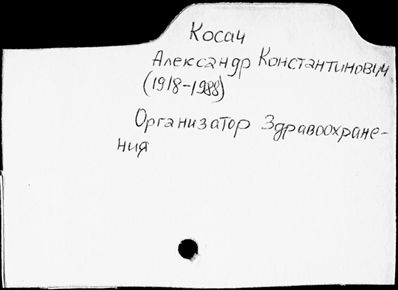 Косач
Александр Константинович
(1918-1988)
Организатор Здравоохране-
ния